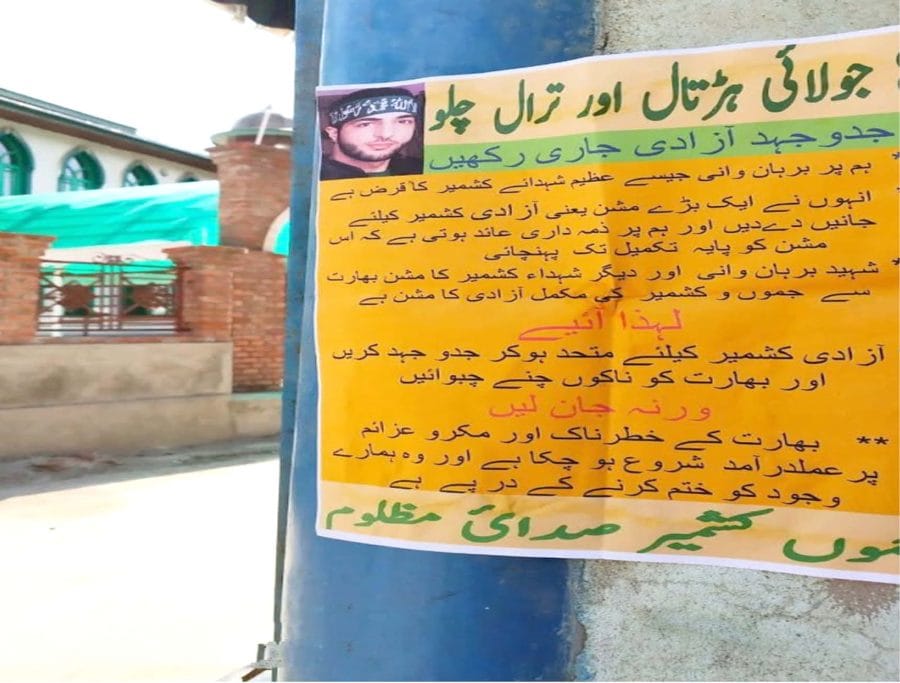 جولائی ہڑتال اور ترال چلو
جدوجہد آزادی جاری رکھیں
* ہم پر برہان وانی جیسے عظیم شہدائے کشمیر کا قرض ہے
انہوں نے ایک بڑے مشن یعنی آزادی کشمیر کیلئے
جانیں دےدیں اور ہم پر ذمہ داری عائد ہوتی ہے کہ اس
مشن کو پایہ تکمیل تک پہنچائی
* شہید برہان وانی اور دیگر شہداء کشمیر کا مشن بھارت
سے جموں و کشمیر کی مکمل آزادی کا مشن ہے
لہذا آئیے
آزادی کشمیر کیلئے متحد ہوکر جدو جہد کریں
اور بھارت کو ناکوں چنے چبوائیں
ورنہ جان لیں
** بھارت کے خطرناک اور مکرو عزائم
پر عملدرآمد شروع ہو چکا ہے اور وہ ہمارے
وجود کو ختم کرنے کے درپے ہے
کشمیر صدائ مظلوم